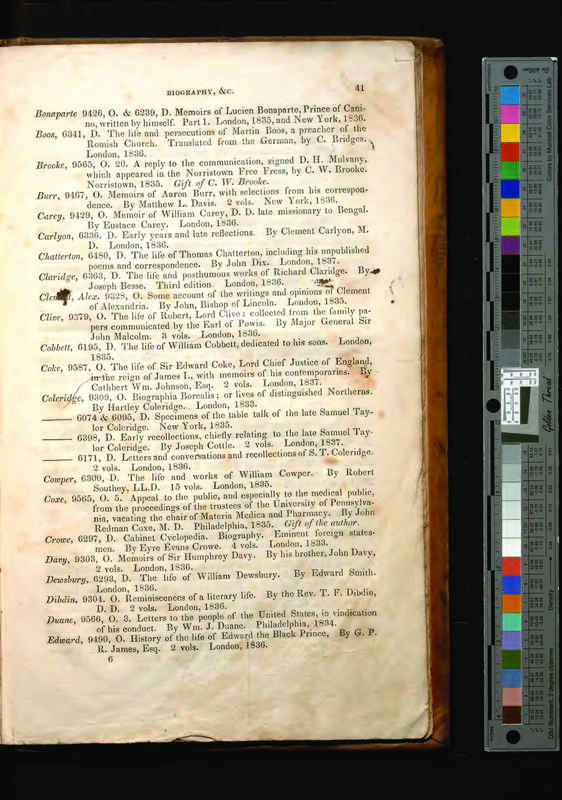 BIOGRAPHY, &C. 41
Bonaparte 9426, O. & 6239, D. Memoirs of Lucien Bonaparte, Prince of Cani-
no, written by himself. Part 1. London, 1835, and New York, 1836.
Boos, 6341, D. The life and persecutions of Martin Boos, a preacher of the
Romish Church. Translated from the German, by C. Bridges.
London, 1836.
Brooke, 9565, O. 20. A reply to the communication, signed D. H. Mulvany,
which appeared in the Norristown Free Press, by C. W. Brooke.
Norristown, 1835. Gift of C. W. Brooke.
Burr, 9467, O. Memoirs of Aaron Burr, with selections from his correspon-
dence. By Matthew L. Davis. 2 vols. New York, 1836.
Carey, 9429, O. Memoir of William Carey, D. D. late missionary to Bengal.
By Eustace Carey. London, 1836.
Carlyon, 6336. D. Early years and late reflections. By Clement Carlyon, M.
D. London, 1836.
Chatterton, 6480, D. The life of Thomas Chatterton, including his unpublished
poems and correspondence. By John Dix. London, 1837.
Claridge, 6363, D. The life and posthumous works of Richard Claridge. By
Joseph Besse. Third edition. London, 1836.
Clement, Alex. 9328, O. Some account of the writings and opinions of Clement
of Alexandria. By John, Bishop of Lincoln. London, 1835.
Clive, 9379, O. The life of Robert, Lord Clive: collected from the family pa-
pers communicated by the Earl of Powis. By Major General Sir
John Malcolm. 3 vols. London, 1836.
Cobbett, 6195, D. The life of William Cobbett, dedicated to his sons. London,
1835.
Coke, 9587, O. The life of Sir Edward Coke, Lord Chief Justice of England,
in the reign of James I., with memoirs of his contemporaries. By
Cuthbert Wm. Johnson, Esq. 2 vols. London, 1837.
Coleridge, 9309, O. Biographia Borealis; or lives of distinguished Northerns.
By Hartley Coleridge. London, 1833.
—— 6074 & 6095, D. Specimens of the table talk of the late Samuel Tay-
lor Coleridge. New York, 1835.
—— 6398, D. Early recollections, chiefly relating to the late Samuel Tay-
lor Coleridge. By Joseph Cottle. 2 vols. London, 1837.
—— 6171, D. Letters and conversations and recollections of S. T. Coleridge.
2 vols. London, 1836.
Cowper, 6300, D. The life and works of William Cowper. By Robert
Southey, LL.D. 15 vols. London, 1835.
Coxe, 9565, O. 5. Appeal to the public, and especially to the medical public,
from the proceedings of the trustees of the University of Pennsylva-
nia, vacating the chair of Materia Medica and Pharmacy. By John
Redman Coxe, M. D. Philadelphia, 1835. Gift of the author.
Crowe, 6297, D. Cabinet Cyclopedia. Biography. Eminent foreign states-
men. By Eyre Evans Crowe. 4 vols. London, 1833.
Davy, 9303, O. Memoirs of Sir Humphrey Davy. By his brother, John Davy,
2 vols. London, 1836.
Dewsbury, 6293, D. The life of William Dewsbury. By Edward Smith.
London, 1836.
Dibdin, 9304. O. Reminiscences of a literary life. By the Rev. T. F. Dibdin,
D. D. 2 vols. London, 1836.
Duane, 9566, O. 3. Letters to the people of the United States, in vindication
of his conduct. By Wm. J. Duane. Philadelphia, 1834.
Edward, 9490, O. History of the life of Edward the Black Prince, By G. P.
R. James, Esq. 2 vols. London, 1836.
6
Colors by Munsell Color Services Lab
Golden Thread
Density
D50 Illuminant, 2 degree observer